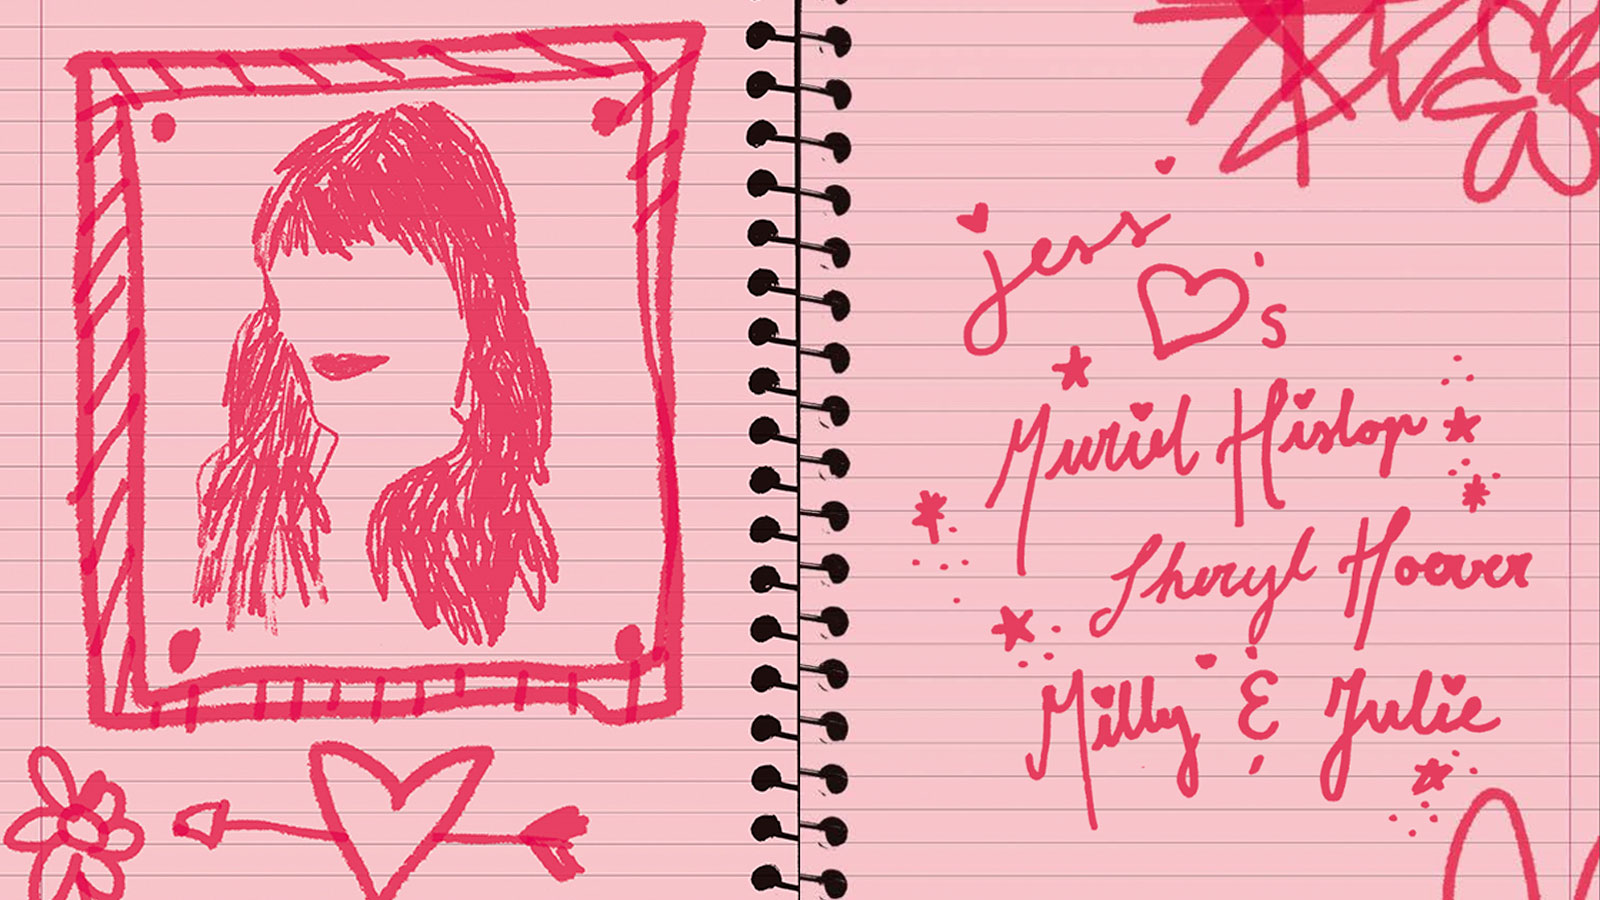 jess
♡'s
Muriel Hislop
Sheryl Hoover
Milly & Julie